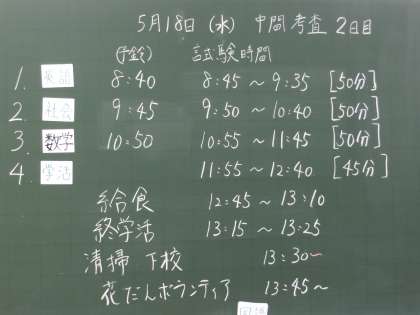 5月18日(水) 中間考査 2日目
(予鈴) 試験時間
1. 英語 8:40 8:45～9:35 [50分]
2 社会 9:45 9:50～10:40 [50分]
3. 数学 10:50 10:55～11:45 [50分]
4. 学活 11:55～12:40 [45分]
給食 12:45～13:10
終学活 13:15～13:25
清掃 下校 13:30～
花だんボランティア 13:45～